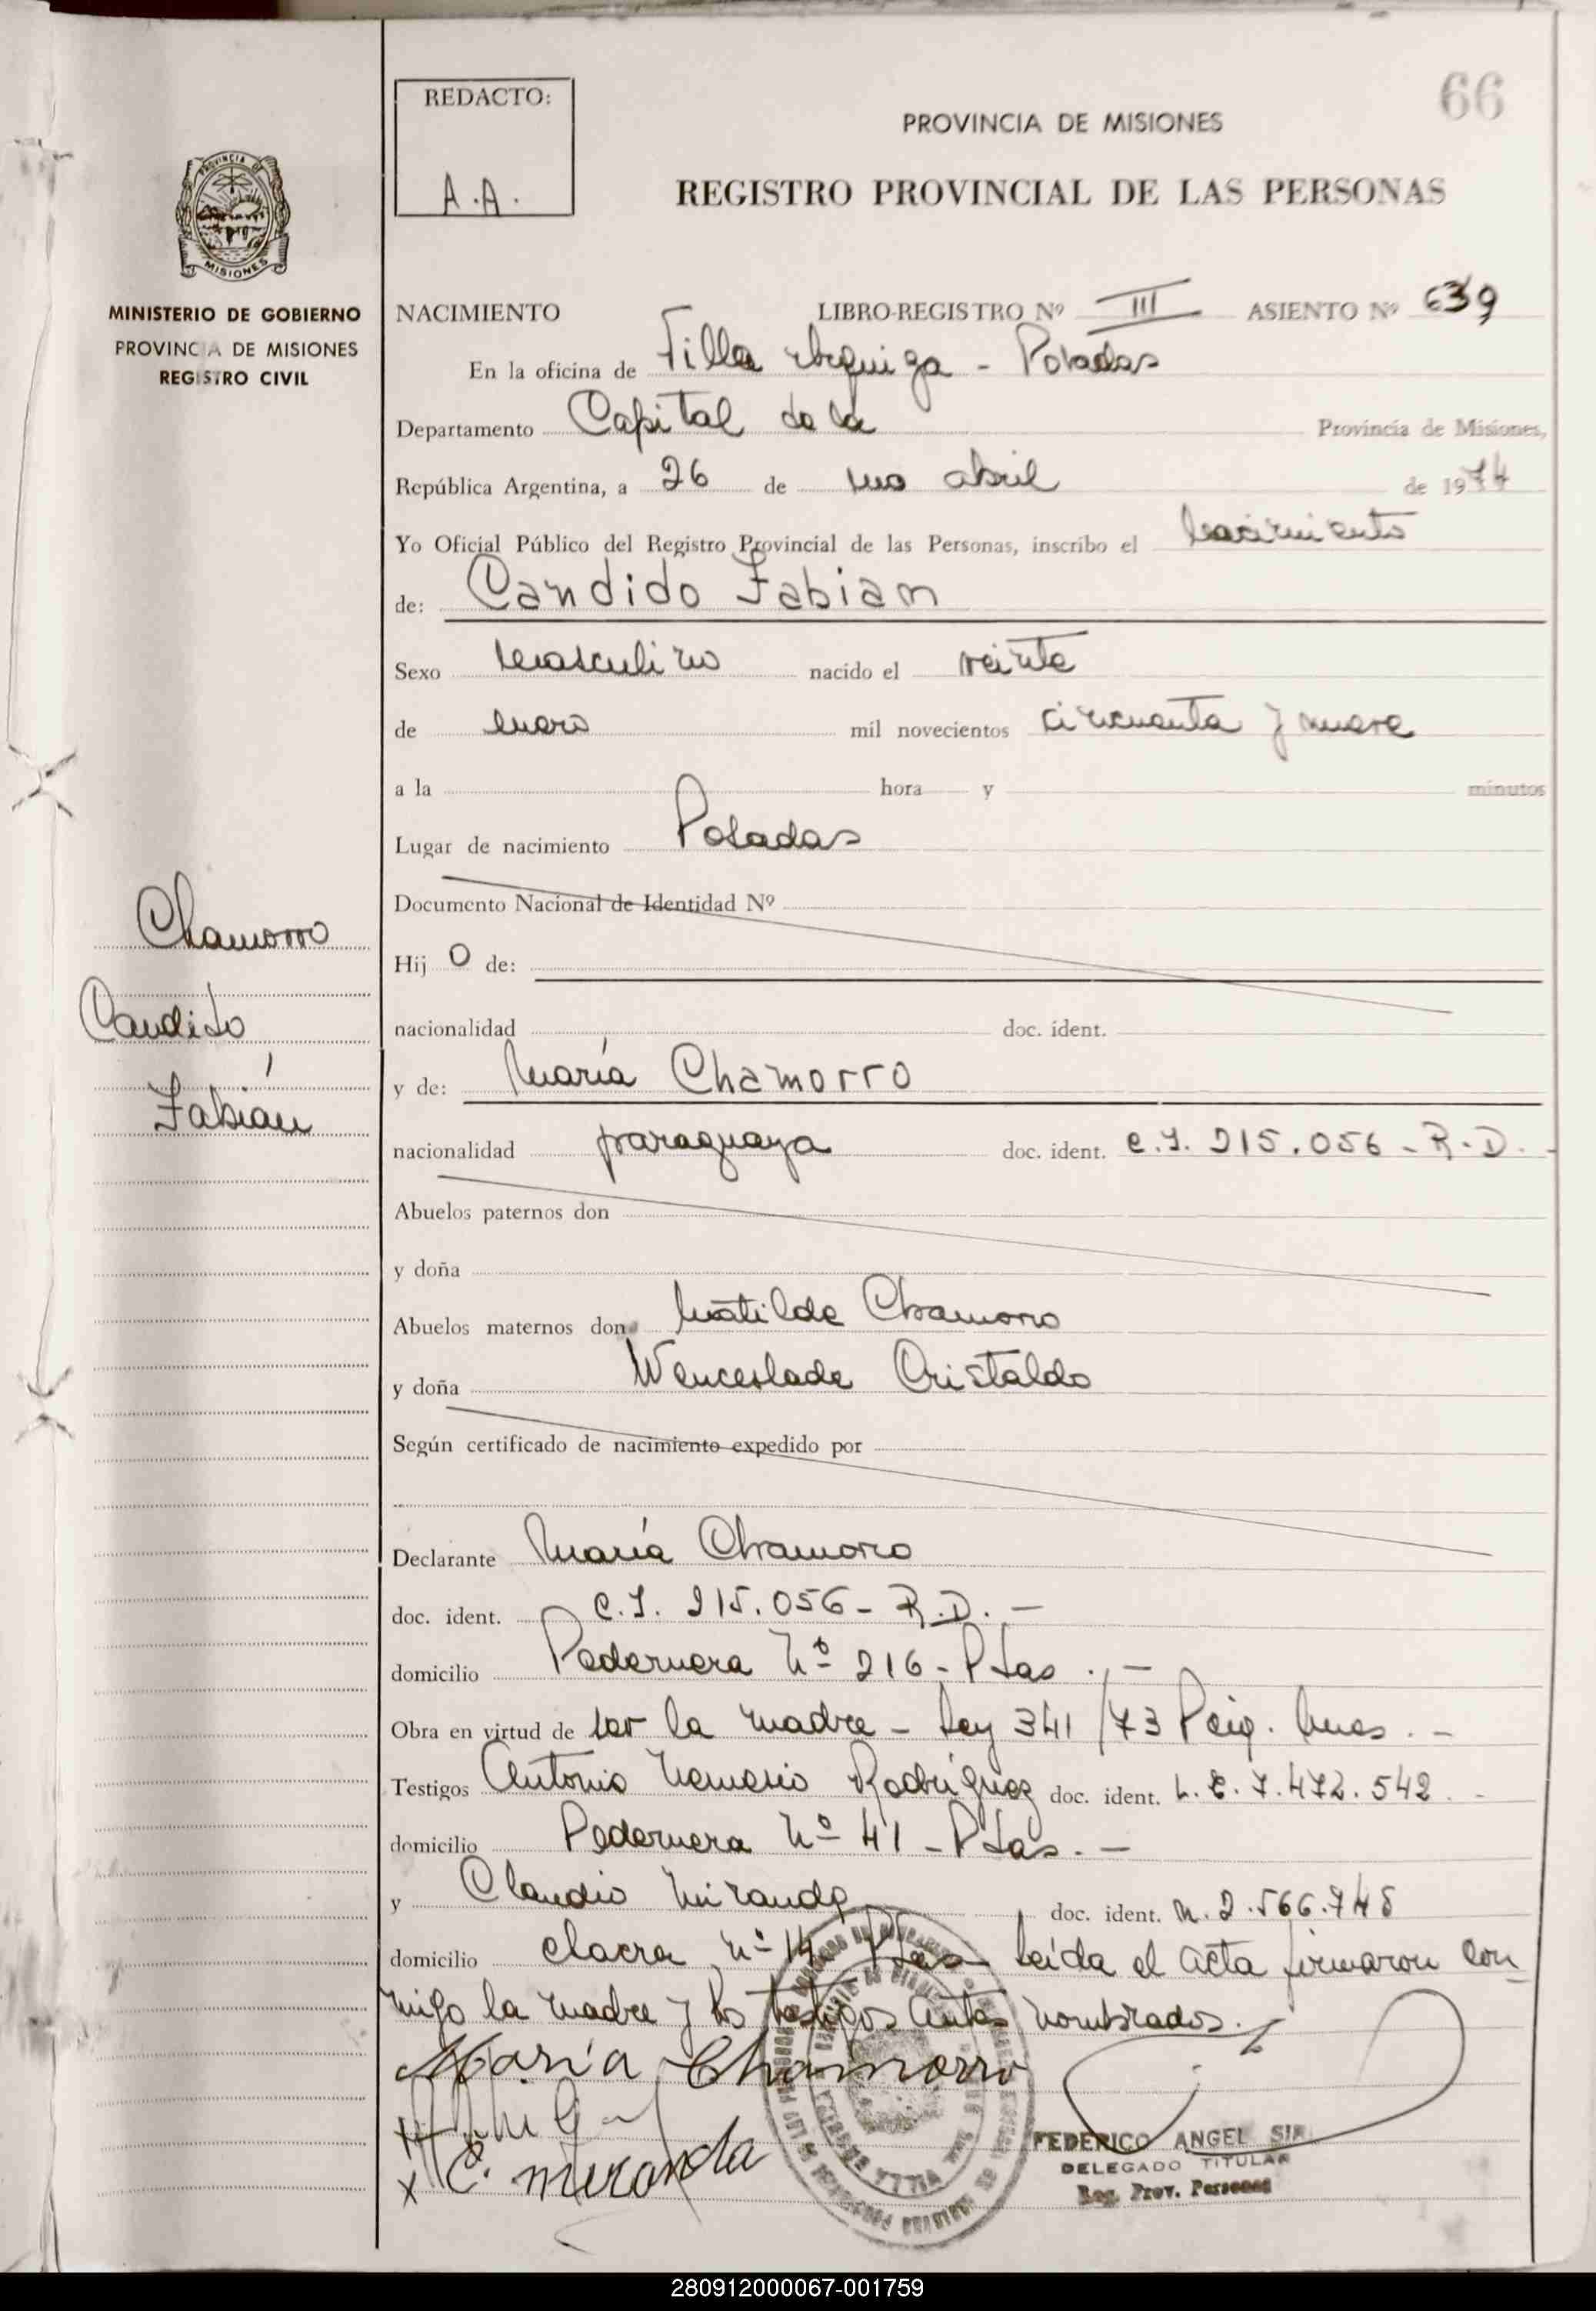 66
REDACTO:
A.A.
PROVINCIA DE MISIONES
REGISTRO PROVINCIAL DE LAS PERSONAS
PROVINCIA DE
MISIONES
MINISTERIO DE GOBIERNO
PROVINCIA DE MISIONES
REGISTRO CIVIL
NACIMIENTO LIBRO-REGISTRO Nº III ASIENTO Nº 639
En la oficina de Villa Urquiza - Posadas
Departamento Capital de la Provincia de Misiones,
República Argentina, a 26 de abril de 1974
Yo Oficial Público del Registro Provincial de las Personas, inscribo el nacimiento
de: Candido Fabian
Sexo masculino nacido el veinte
de enero mil novecientos cincuenta y nueve
a la hora y minutos
Lugar de nacimiento Posadas
Documento Nacional de Identidad Nº
Hij o de:
nacionalidad doc. ident.
y de: María Chamorro
nacionalidad paraguaya doc. ident. C.I. 215.056 - R.D.
Chamorro
Candido
Fabián
Abuelos paternos don
y doña
Abuelos maternos don Matilde Chamorro
y doña Wenceslada Cristaldo
Según certificado de nacimiento expedido por
Declarante María Chamorro
doc. ident. C.I. 215.056 - R.D. -
domicilio Pedernera Nº 216 - Pdas. -
Obra en virtud de ser la madre - Ley 341/73 -
Testigos Antonio Nemesio Rodríguez doc. ident. L.E. 7.472.542 -
domicilio Pedernera Nº 41 - Pdas. -
y Claudio Miranda doc. ident. M. 2.566.748
domicilio chacra nº 14 Pdas leída el acta firmaron con
migo la madre y los testigos antes nombrados.
María Chamorro
x
x C. Miranda
FEDERICO ANGEL
DELEGADO TITULAR
Reg. Prov. Personas
280912000067-001759